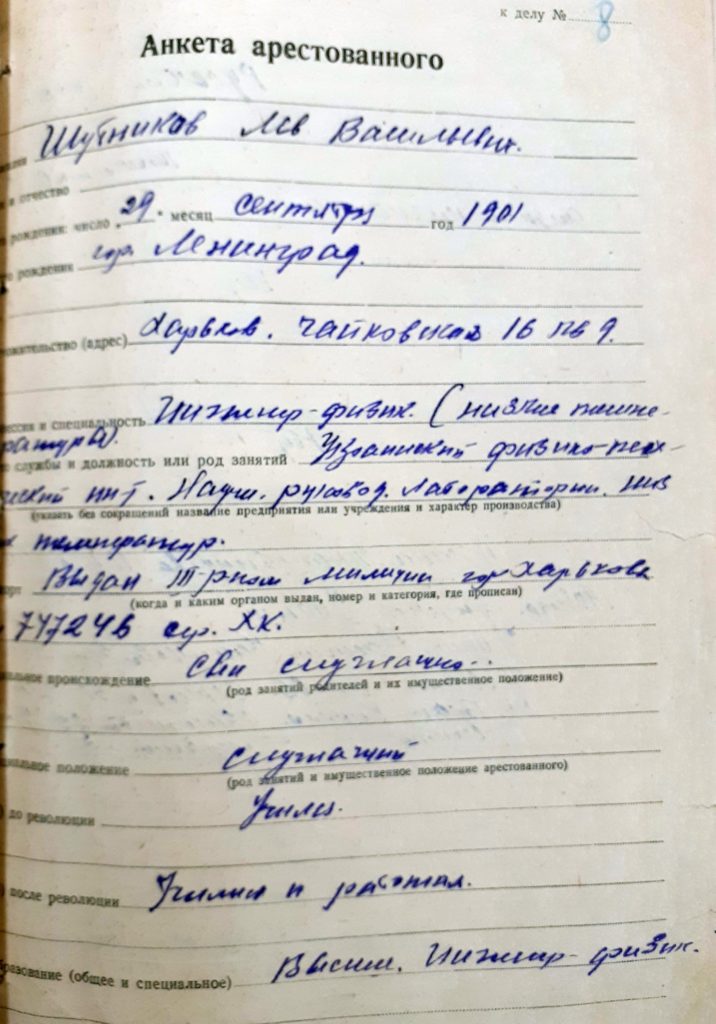 к делу № 8
Анкета арестованного
Шубников Лев Васильевич.
и отчество
рождения: число „29" месяц сентября год 1901
рождения гор. Ленинград.
жительство (адрес) Харьков. Чайковская 16 кв 9.
ессия и специальность Инженер-физик. (низкие темпе-
ратуры).
службы и должность или род занятий Украинский физико-тех-
ческий инт. Научн. руковод. лаборатории. низ
(указать без сокращений название предприятия или учреждения и характер производства)
х температур.
орт Выдан милиции гор Харькова
(когда и каким органом выдан, номер и категория, где прописан)
747248 ср. ХК.
альное происхождение Сын служащего.
(род занятий родителей и их имущественное положение)
циальное положение служащий
(род занятий и имущественное положение арестованного)
до революции Учился.
после революции Учился и работал.
бразование (общее и специальное) Высшее. Инженер-физик.